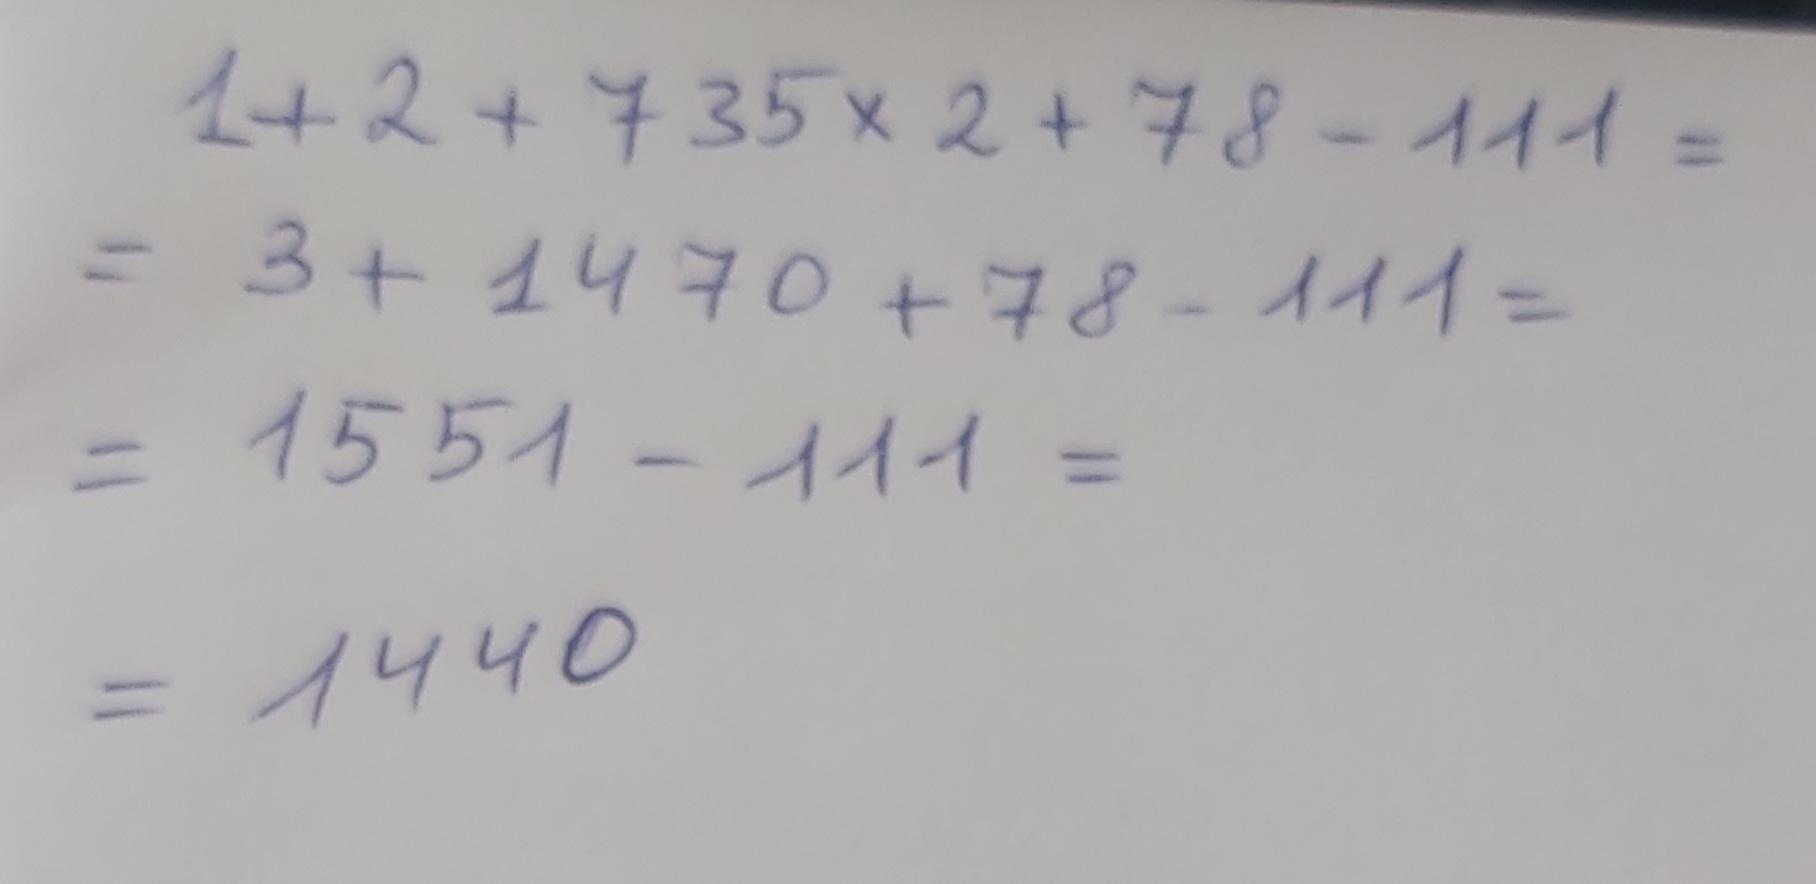 1+2+735×2+78-111=
=3+1470+78-111=
=1551-111=
=1440